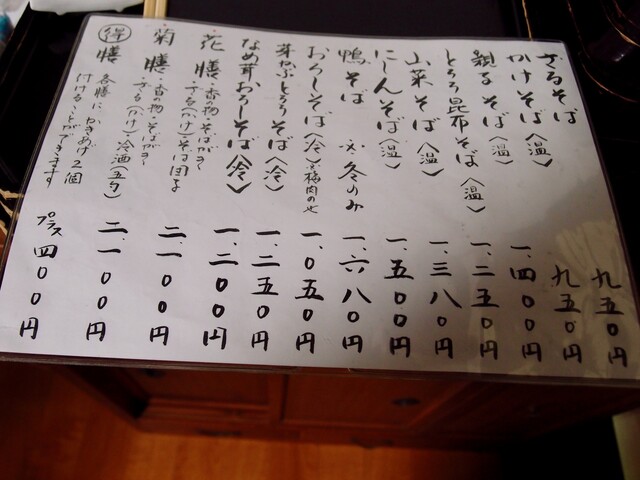 ざるそば 九五〇円
かけそば〈温〉 九五〇円
親子そば〈温〉 一、四〇〇円
とろろ昆布そば〈温〉 一、二五〇円
山菜そば〈温〉 一、三八〇円
にしんそば〈温〉 一、五〇〇円
鴨そば ※冬のみ 一、六八〇円
おろしそば〈冷〉※梅肉のせ 一、〇五〇円
芽かぶとろろそば〈冷〉 一、二五〇円
なめ茸おろしそば〈冷〉 一、二〇〇円
花膳 ・香の物・そばがき
・ざる(かけ)そば・団子 二、一〇〇円
菊膳 ・香の物・そばがき
・ざる(かけ)・冷酒(五勺) 二、一〇〇円
得膳 各膳に かきあげ2個
付けることができます プラス四〇〇円